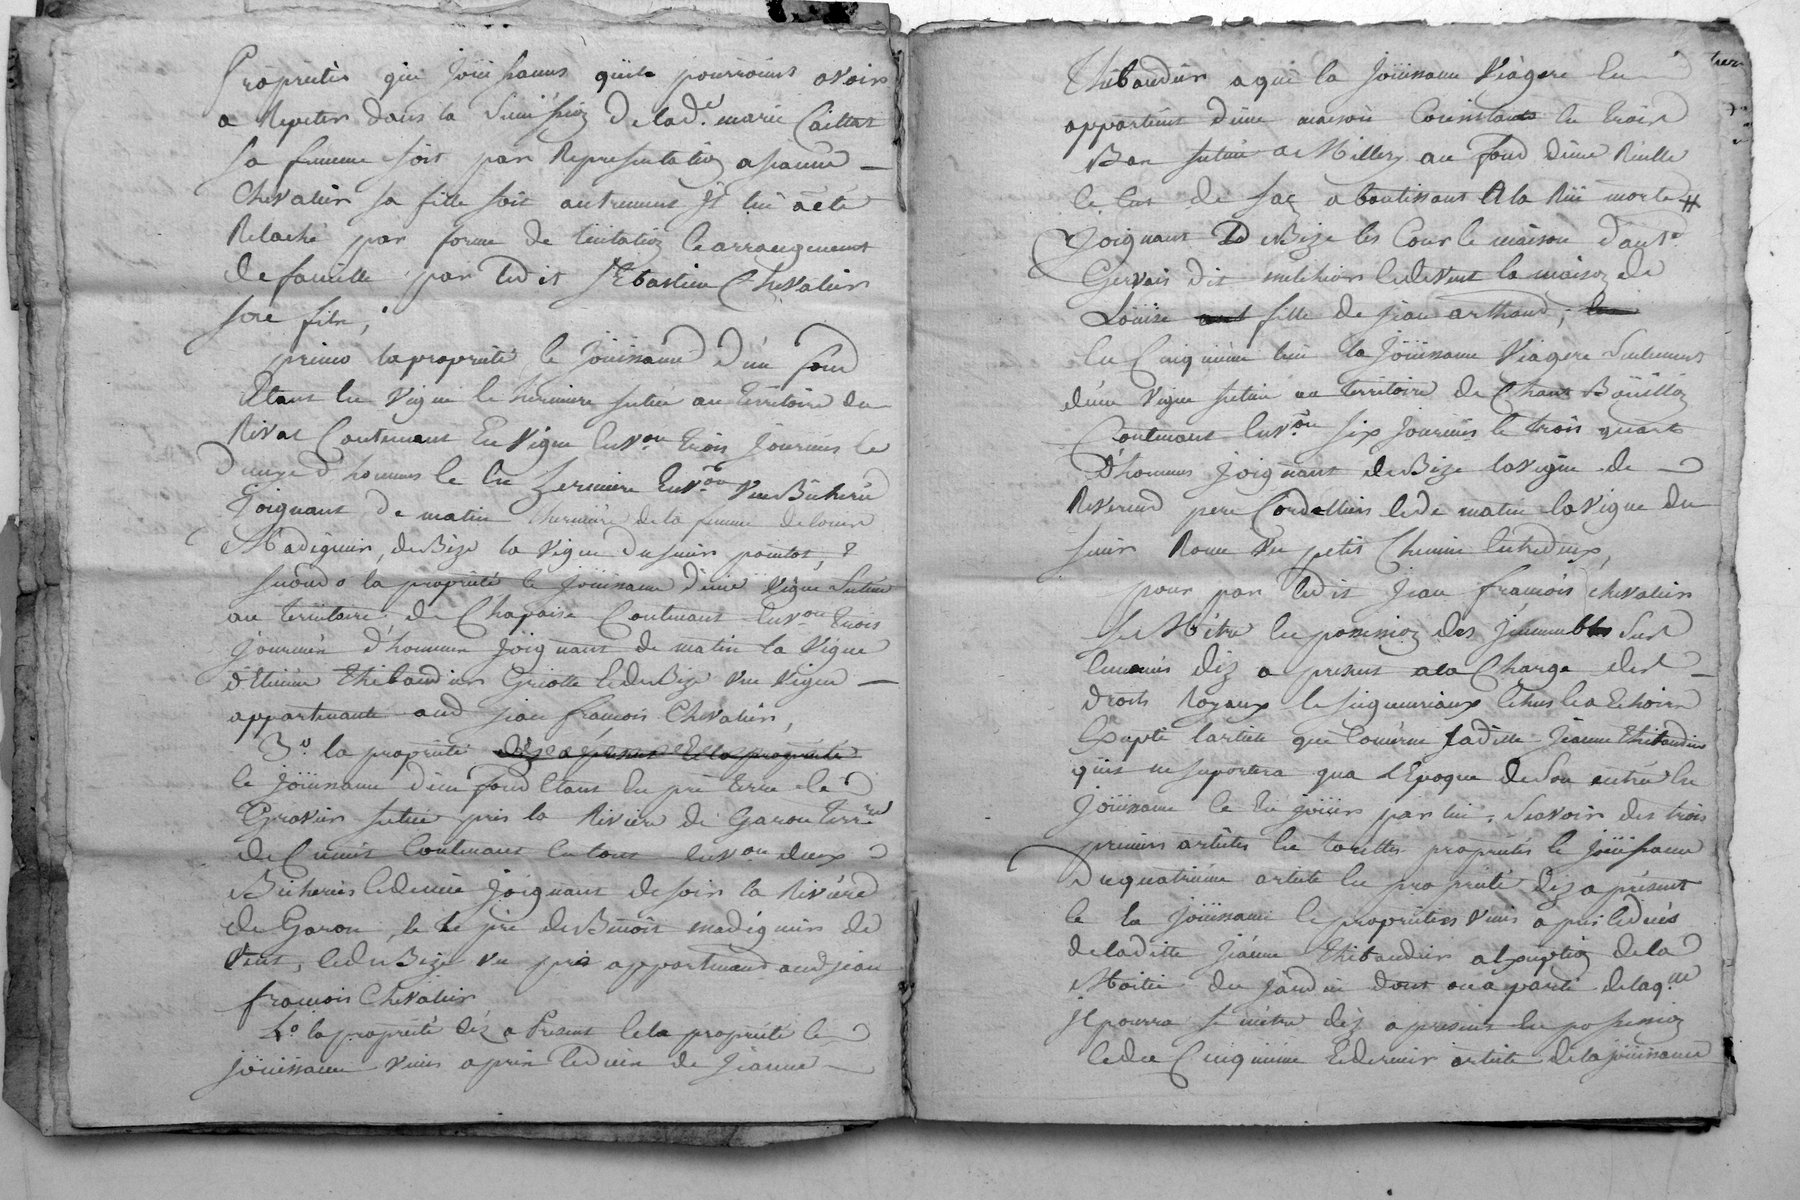 Propriétés que joüissances qu'ils pourroient avoir
a Repeter dans la Succession de lad.e marie Caillat
sa femme soit par Representation a jeanne
Chevalier sa fille soit autrement Jl lui a été
Relaché par forme de et arrangement
de famille par ledit Sébastien Chevalier
son fils,
primo la propriété et joüissance d'un fond
Etant en Vigne et hermiere située au territoire du
Rivat Contenant En Vigne env.on trois journées et
d'hommes et en hermiere Env.on une Bicherée
joignant de matin hermiere de la femme de
Madignier, de Bize la Vigne du sieur pointot,
secundo la propriété et joüissance d'une Vigne située
au territoire de Chapoise Contenant Env.on trois
journées d'hommes joignant de matin la Vigne
d'Etienne Thibaudier Griotte et de Bize une Vigne
appartenante aud jean françois Chevalier,
3.o la propriété dèz a present et la propriété
et joüissance d'un fond Etant en pré terre et
Gravier située près la Riviere de Garon terre
de Contenant en tout env.on deux
Bicherées et demie joignant de soir la Riviére
de Garon, et le pré de Benoit madignier de
Vent, et de Bize un pré appartenant aud jean
françois Chevalier
4.o la propriété dèz a Present et la propriété et
joüissance unies après le décès de Jeanne
Thibaudier a qui la joüissance Viagere en
appartient d'une maison Consistante en trois
Bas située a Millery au fond d'une Ruelle
et Cus de sac aboutissant A la Rüe morte #
joignant de Bize les Cour et maison d'ant.e
Gervais dit et de Vent la maison de
Loüise fille de jean arthaud,
En Cinquième lieu la joüissance Viagere seulement
d'une Vigne située au territoire de Chant Boüillon
Contenant Env.on six journées et trois quart
d'hommes joignant de Bize la Vigne de
Reverend pere Cordelliers et de matin la Vigne du
sieur Roux un petit Chemin entredeux,
pour par ledit jean françois chevalier
se Métre en possession des jmmeubles sus
énoncés dèz a present a la Charge des
droits Royaux et seigneuriaux Echus et a Echoir
Excepté l'article que Concerne ladite Jeanne Thibaudier
qu'il ne suportera qu'a l'Epoque de son entrée en
joüissance et en joüir par lui, Sçavoir des trois
premiers articles en toutte propriété et joüissance
du quatriéme article en propriété dèz a présent
et la joüissance et propriétés unies après le décès
de laditte Jeanne Thibaudier a l'exception de la
Moitié du jardin dont on a parlé de laq.lle
jl pourra se métre dèz a present en possession
et du Cinquième Et dernier article de la joüissance